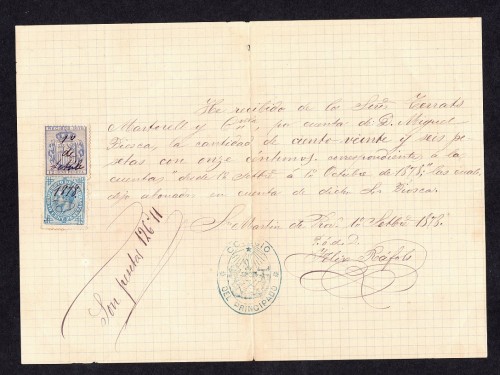 He recibido de los Sres Torrats
Martorell y Cia por cuenta de D. Miguel
Biosca, la cantidad de ciento veinte y seis pe
setas con once céntimos, correspondiente á la
cuenta desde 1o Setbre á 1o Octubre de 1878; las cuales
dejo abonado en cuenta de dicho Sr Bioscar
S. Martin de Prov. 1o Setbre 1878
Félix Ráfols
Son pesetas 126'11
1878
DEL PRINCIPADO